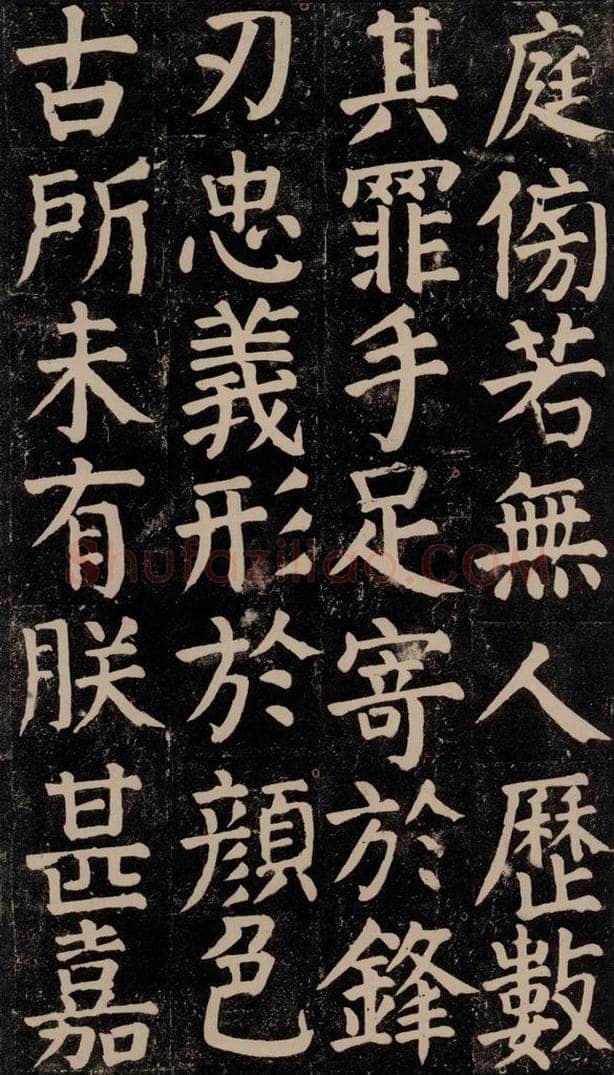 庭傍若無人歷數
其罪手足寄於鋒
刃忠義形於顏色
古所未有朕甚嘉
Shufaziliao.COM